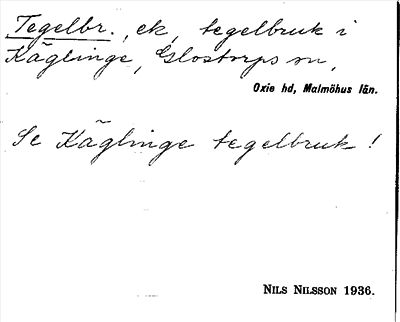 Tegelbr., ek, tegelbruk i
Käglinge, Glostorps sn,
Oxie hd, Malmöhus län.
Se Käglinge tegelbruk!
NILS NILSSON 1936.